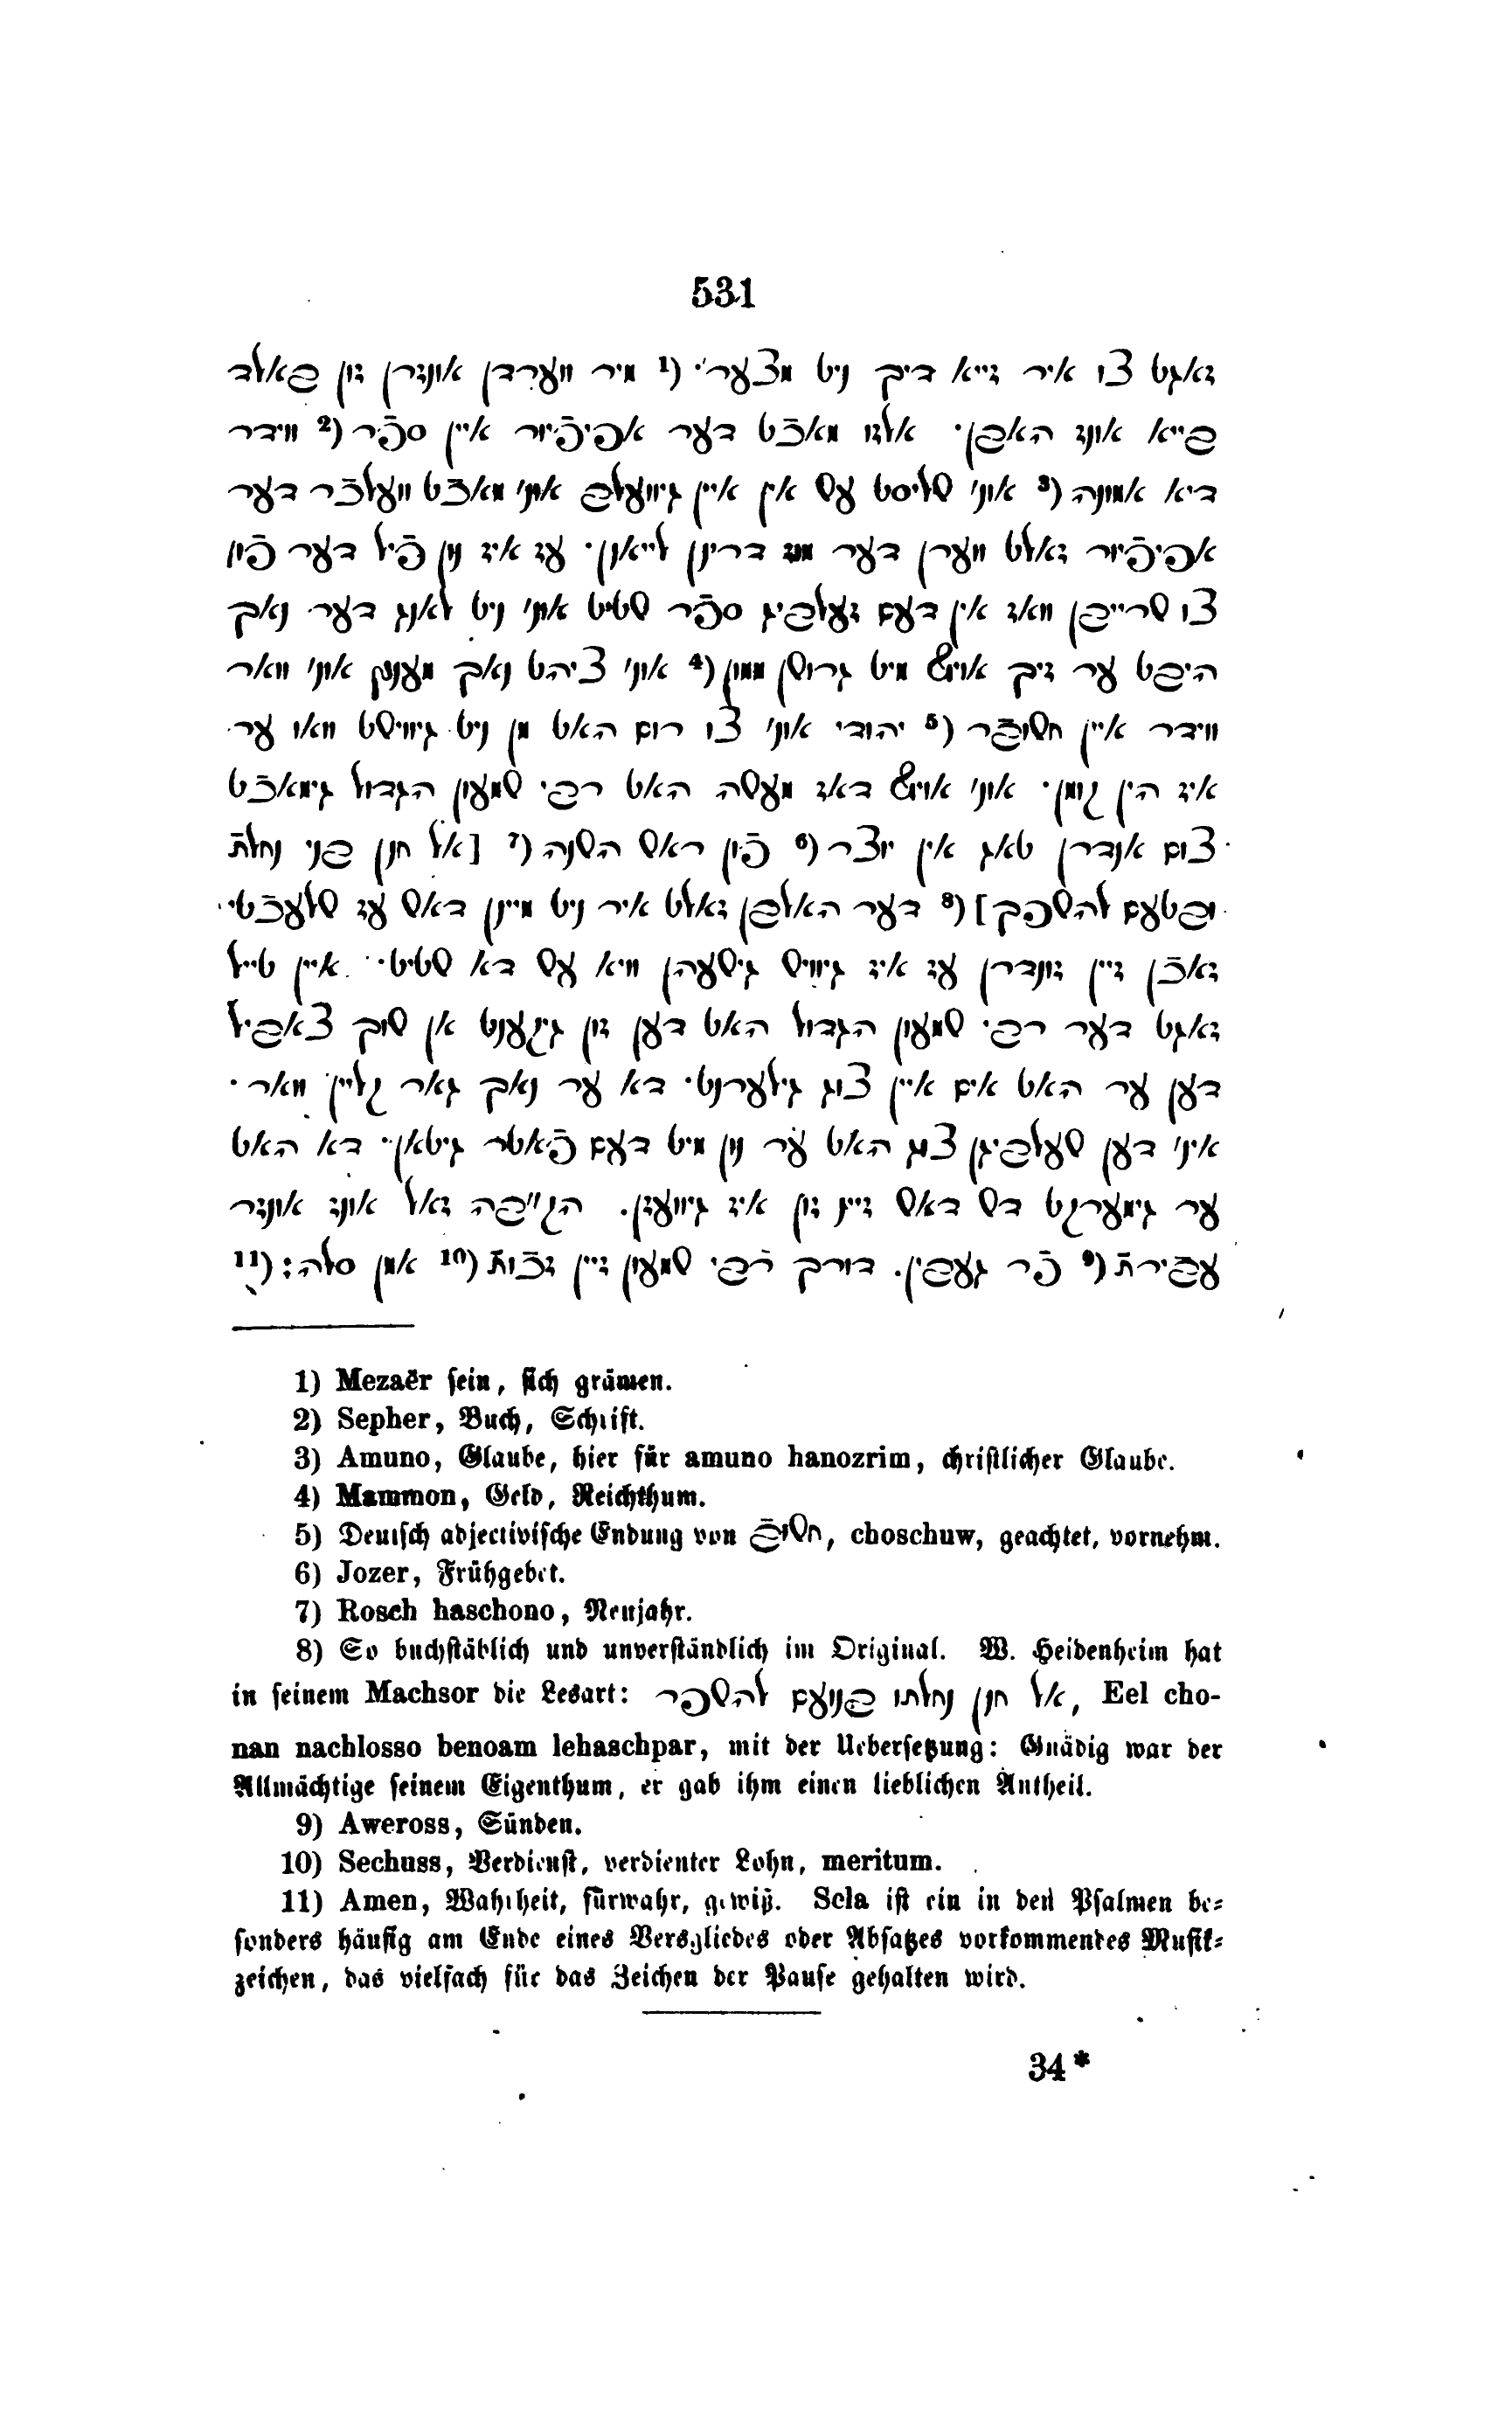 531
זאגט צו איר זייא דיך ניט מצער· (1 מיר ווערדן אונזרן זון פאלד
פייא אונז האפן· אלזו מאכֿט דער אפיפֿיור איין ספֿר (2 ווידר
דיא אמונה (3 אוני שליסט עש אין איין גיוועלפ אוני מאכֿט וועלכֿר דער
אפיפֿיור זאלט ווערן דער מוז דרינן לייאנן· עז איז נון פֿיל דער פֿון
צו שרייפן וואז אין דעם זעלפיג ספֿר שטיט אוני ניט לאנג דער נאך
היפט ער זיך אויש מיט גרושן ממון (4 אוני ציהט נאך מענץ אוני וואר
ווידר איין חשופֿר (5 יהודי אוני צו רום האט מן ניט גיוויסט וואו ער
איז הין קומן· אוני אויש דאז מעשה האט רפי שמעון הגדול גימאכֿט
צום אנדרן טאג אין יוצר (6 פֿון ראש השנה (7 [אל חנן פני נחלתֿ
ופטעם להשפך] (8 דער האלפן זאלט איר ניט מיינן דאש עז שלעכֿטי
זאכֿן זיין זונדרן עז איז גיוויש גישעהן וויא עש דא שטיט· איין טייל
זאגט דער רפי שמעון הגדול האט דען זון גיקענט אן שוך צאפיל
דען ער האט אים איין צוג גילערנט· דא ער נאך גאר קליין וואר·
איני דען שעלפיגן צוג האט ער נון מיט דעם פֿאטר גיטאן· דא האט
ער גימערקט דש דאש זיין זון איז גיוועזן. הק״פה זאל אונז אונזר
עפֿירתֿ (9 פֿר געפין. דורך רפי שמעון זיין זכֿותֿ (10 אמן סלה: (11
1) Mezaër sein, sich grämen.
2) Sepher, Buch, Schrift.
3) Amuno, Glaube, hier für amuno hanozrim, christlicher Glaube.
4) Mammon, Geld, Reichthum.
5) Deutsch adjectivische Endung von חשופֿ, choschuw, geachtet, vornehm.
6) Jozer, Frühgebet.
7) Rosch haschono, Neujahr.
8) So buchstäblich und unverständlich im Original. W. Heidenheim hat
in seinem Machsor die Lesart: אל חנן נחלתו פנועם להשפר, Eel cho-
nan nachlosso benoam lehaschpar, mit der Uebersetzung: Gnädig war der
Allmächtige seinem Eigenthum, er gab ihm einen lieblichen Antheil.
9) Aweross, Sünden.
10) Sechuss, Verdienst, verdienter Lohn, meritum.
11) Amen, Wahrheit, fürwahr, gewiß. Sela ist ein in den Psalmen be-
sonders häufig am Ende eines Versgliedes oder Absatzes vorkommendes Musik-
zeichen, das vielfach für das Zeichen der Pause gehalten wird.
34*